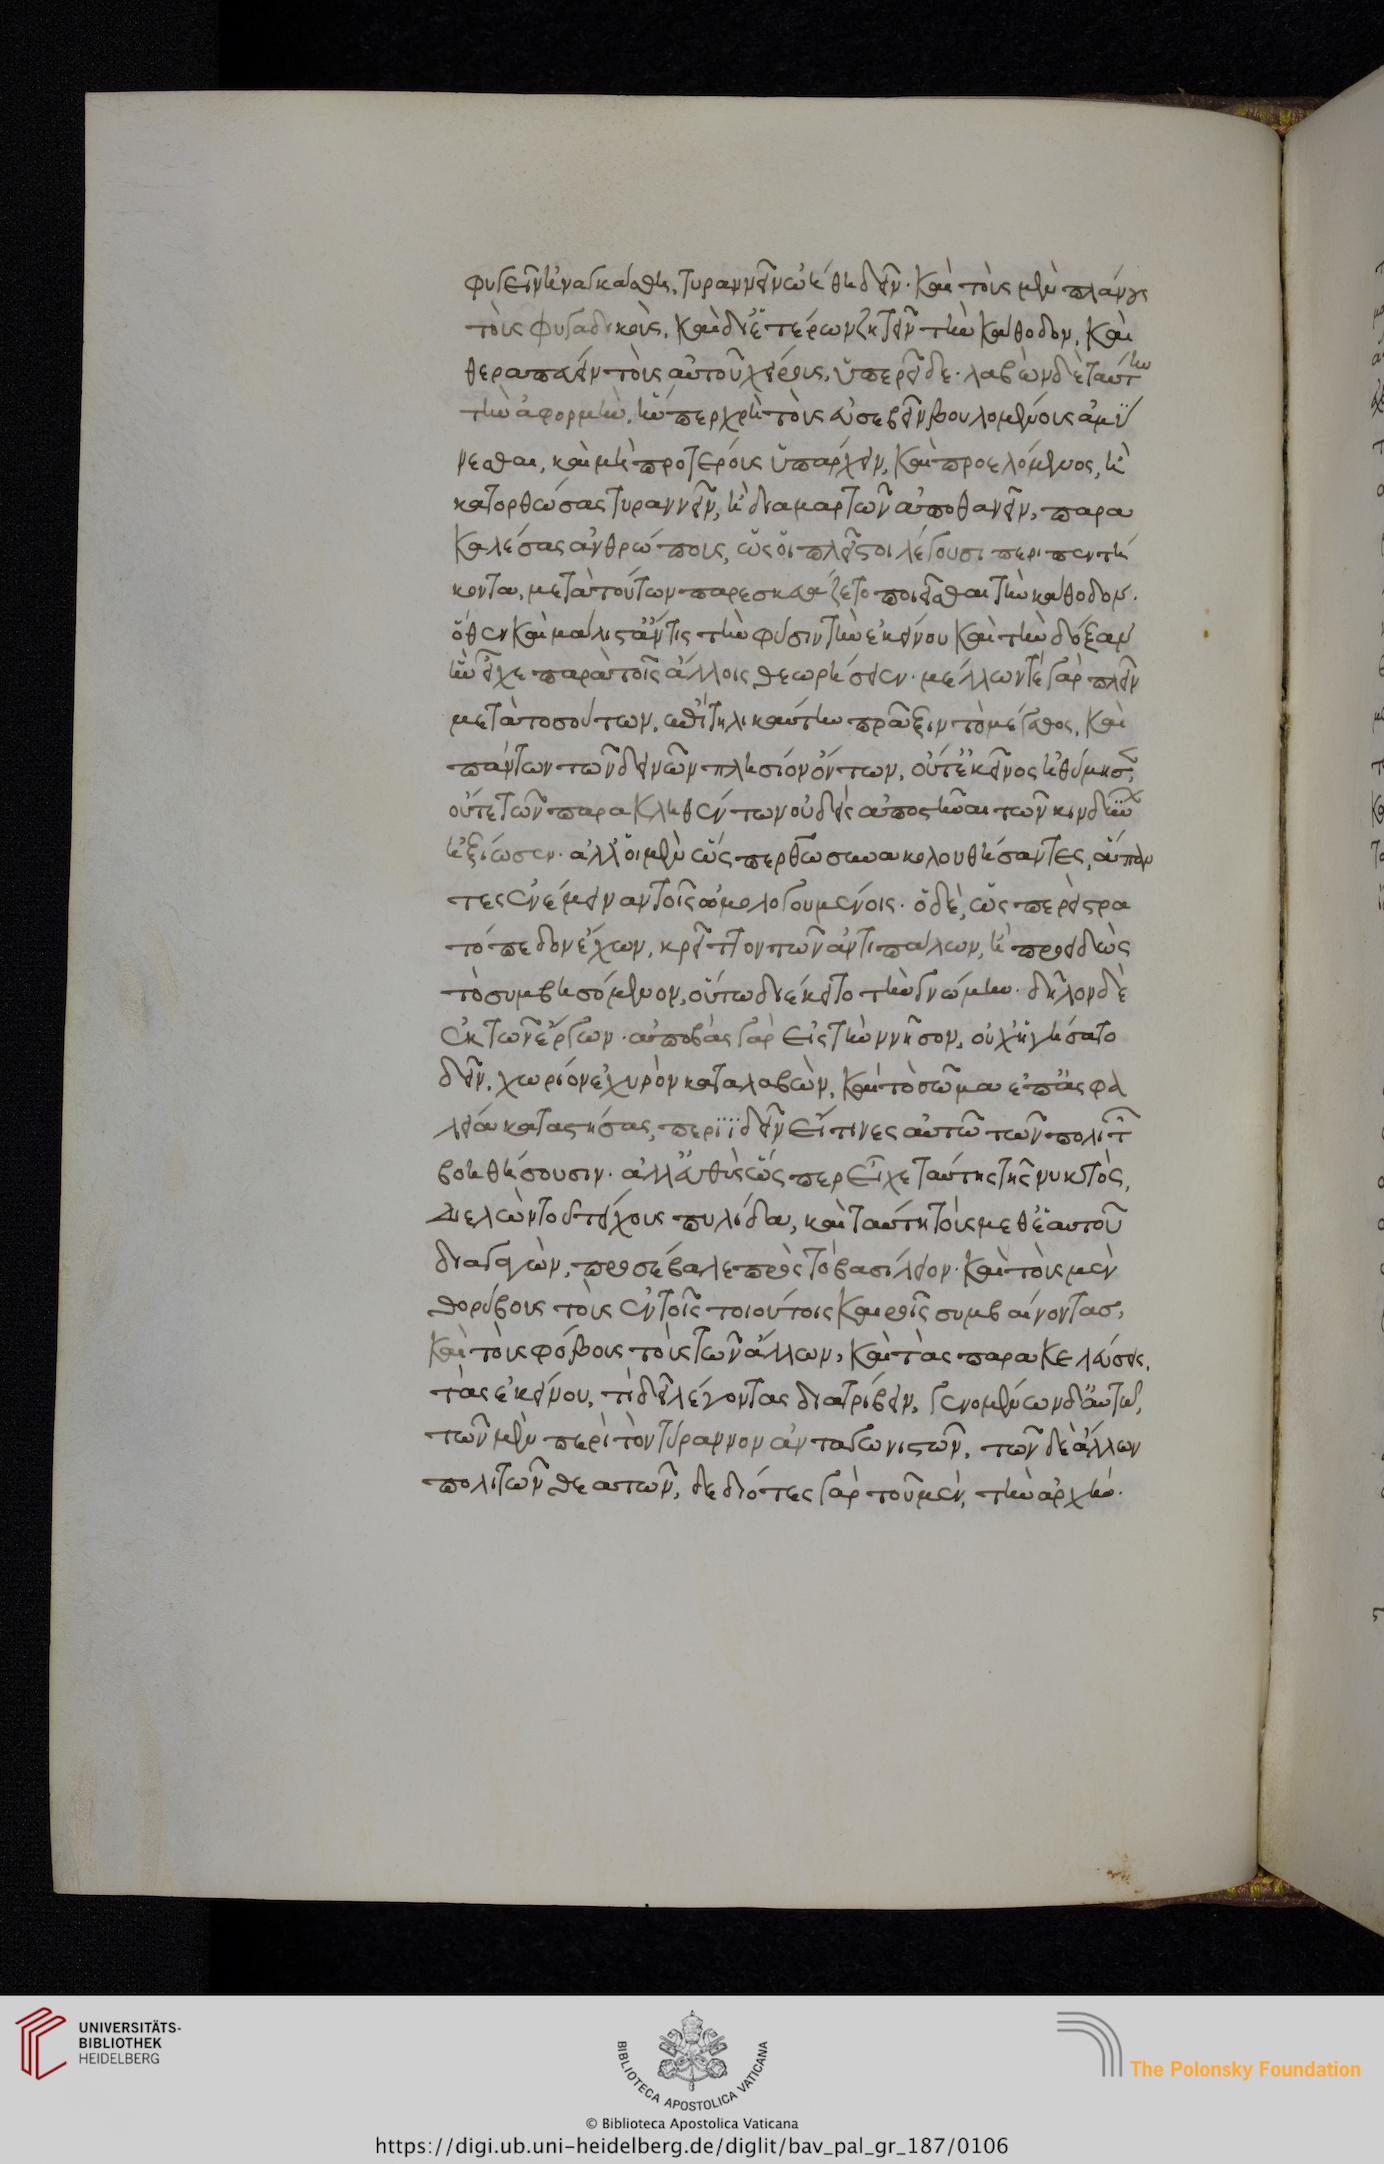 φυγεῖν ἠναγκάσθη, τυραννεῖν ὠήθη δεῖν· καὶ τοὺς μὲν πλάνους
τοὺς φυγαδικοὺς, καὶ δι' ἑτέρων ζητεῖν τὴν κάθοδον, καὶ
θεραπεύειν τοὺς αὑτοῦ χείρους, ὑπερεῖδε· λαβὼν δὲ ταύτην
τὴν ἀφορμὴν, ἥνπερ χρὴ τοὺς εὐσεβεῖν βουλομένους ἀμύ
νεσθαι, καὶ μὴ προτέρους ὑπάρχειν, καὶ προελόμενος, ἢ
κατορθώσας τυραννεῖν, ἢ διαμαρτὼν ἀποθανεῖν, παρα
καλέσας ἀνθρώπους, ὡς οἱ πλεῖστοι λέγουσι περὶ πεντή
κοντα, μετὰ τούτων παρεσκευάζετο ποιεῖσθαι τὴν κάθοδον.
ὅθεν καὶ μάλιστ' ἄν τις τὴν φύσιν τὴν ἐκείνου καὶ τὴν δόξαν
ἣν εἶχε παρὰ τοῖς ἄλλοις θεωρήσειεν· μελλόντων γὰρ πλεῖν
μετὰ τοσούτων, ἐπὶ τηλικαύτην πρᾶξιν τὸ μέγεθος, καὶ
πάντων τῶν δεινῶν πλησίον ὄντων, οὔτ' ἐκεῖνος ἠθύμησεν,
οὔτε τῶν παρακληθέντων οὐδεὶς ἀποστῆναι τῶν κινδύνων
ἠξίωσεν· ἀλλ' οἱ μὲν ὥσπερ θεῷ συνακολουθήσαντες, ἅπαν
τες ἐνέμειναν τοῖς ὡμολογουμένοις· ὁ δὲ, ὥσπερ ἢ στρα
τόπεδον ἔχων, κρεῖττον τῶν ἀντιπάλων, ἢ προειδὼς
τὸ συμβησόμενον, οὕτω διέκειτο τὴν γνώμην· δῆλον δὲ
ἐκ τῶν ἔργων· ἀποβὰς γὰρ εἰς τὴν νῆσον, οὐχ ἡγήσατο
δεῖν, χωρίον ἐχυρὸν καταλαβὼν, καὶ τὸ σῶμα ἐν ἀσφα
λείᾳ καταστήσας, περιϊδεῖν εἴ τινες αὐτῷ τῶν πολιτῶν
βοηθήσουσιν· ἀλλ' εὐθὺς ὥσπερ εἶχε ταύτης τῆς νυκτὸς,
διελὼν τοῦ τείχους πυλίδα, καὶ ταύτῃ τοὺς μεθ' ἑαυτοῦ
διαγαγὼν, προσέβαλε πρὸς τὸ βασίλειον· καὶ τοὺς μὲν
θορύβους τοὺς ἐν τοῖς τοιούτοις καιροῖς συμβαίνοντας,
καὶ τοὺς φόβους τοὺς τῶν ἄλλων, καὶ τὰς παρακελεύσεις,
τὰς ἐκείνου, τί δεῖ λέγοντας διατρίβειν, γενομένων δ' αὐτῷ,
τῶν μὲν περὶ τὸν τύραννον ἀνταγωνιστῶν, τῶν δὲ ἄλλων
πολιτῶν θεατῶν, δεδιότες γὰρ τοῦ μὲν, τὴν ἀρχὴν.
UNIVERSITÄTS-
BIBLIOTHEK
HEIDELBERG
BIBLIOTECA APOSTOLICA VATICANA
The Polonsky Foundation
© Biblioteca Apostolica Vaticana
https://digi.ub.uni-heidelberg.de/diglit/bav_pal_gr_187/0106